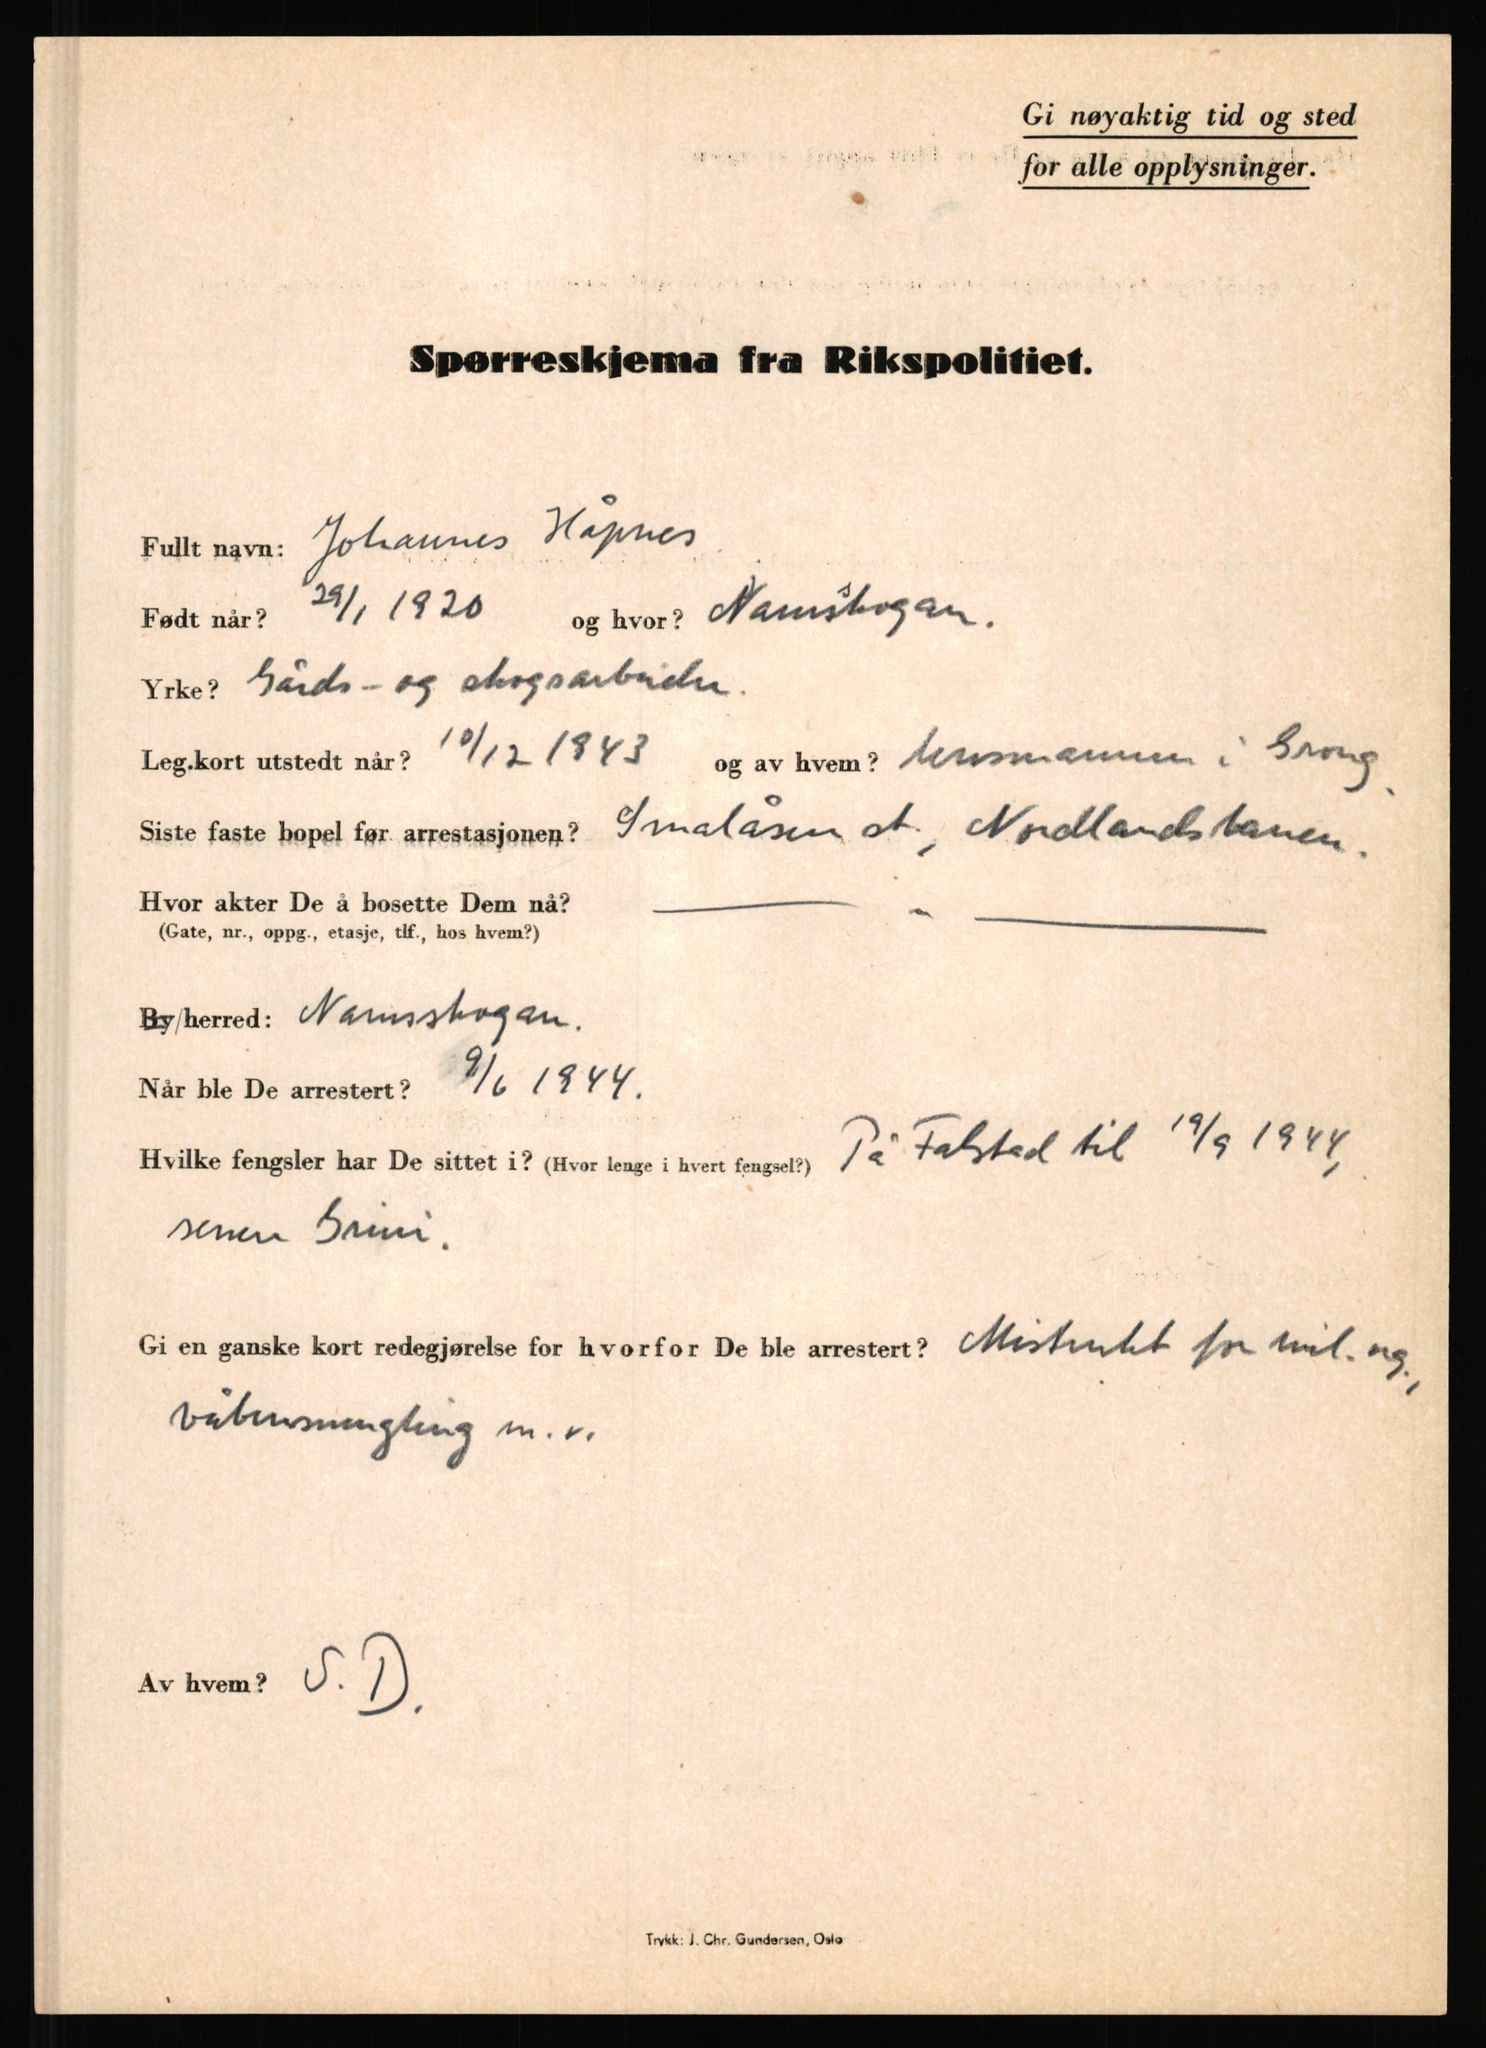 Gi nøyaktig tid og sted
for alle opplysninger.
Spørreskjema fra Rikspolitiet.
Fullt navn: Johannes Håpnes
Født når? 29/1 1920 og hvor? Namsskogan.
Yrke? Gårds- og skogsarbeider.
Leg.kort utstedt når? 10/12 1943 og av hvem? lensmannen i Grong.
Siste faste bopel før arrestasjonen? Smalåsen st., Nordlandsbanen.
Hvor akter De å bosette Dem nå? — " —
(Gate, nr., oppg., etasje, tlf., hos hvem?)
By/herred: Namsskogan.
Når ble De arrestert? 9/6 1944.
Hvilke fengsler har De sittet i? (Hvor lenge i hvert fengsel?) På Falstad til 19/9 1944,
senere Grini.
Gi en ganske kort redegjørelse for hvorfor De ble arrestert? Mistenkt for mil. org.,
våbensmugling m.v.
Av hvem? S.D.
Trykk: J. Chr. Gundersen, Oslo